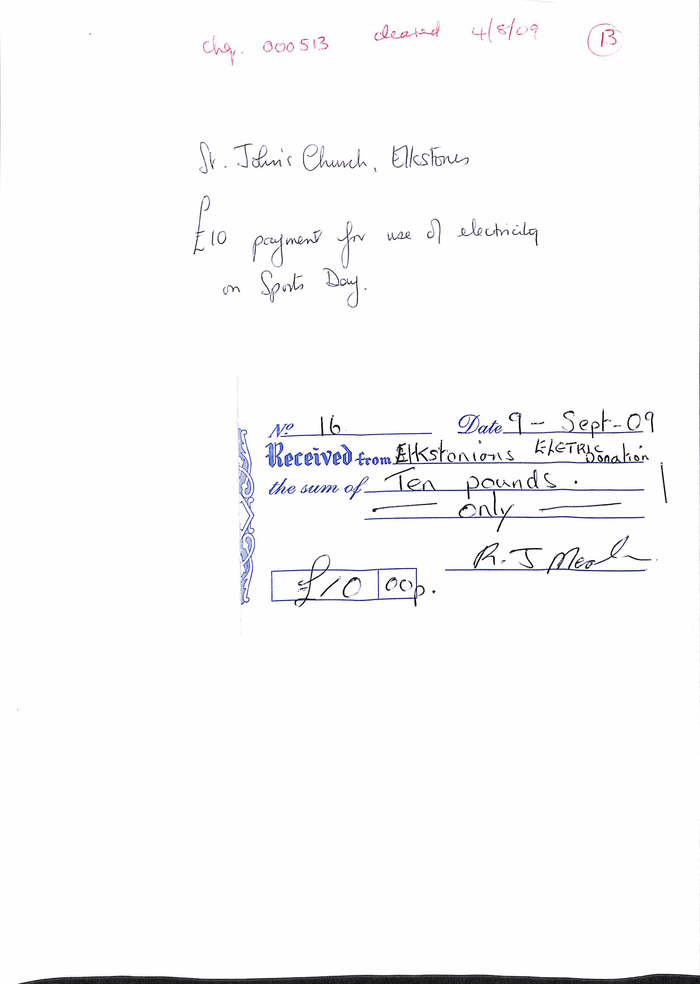 chq. 000513 cleared 4/8/09 13
St. John's Church, Elkstones
£10 payment for use of electricity
on Sports Day.
No 16 Date 9 - Sept - 09
Received from Elkstonions ELETRIC Donation
the sum of Ten pounds.
only
R. J
£10 00p.